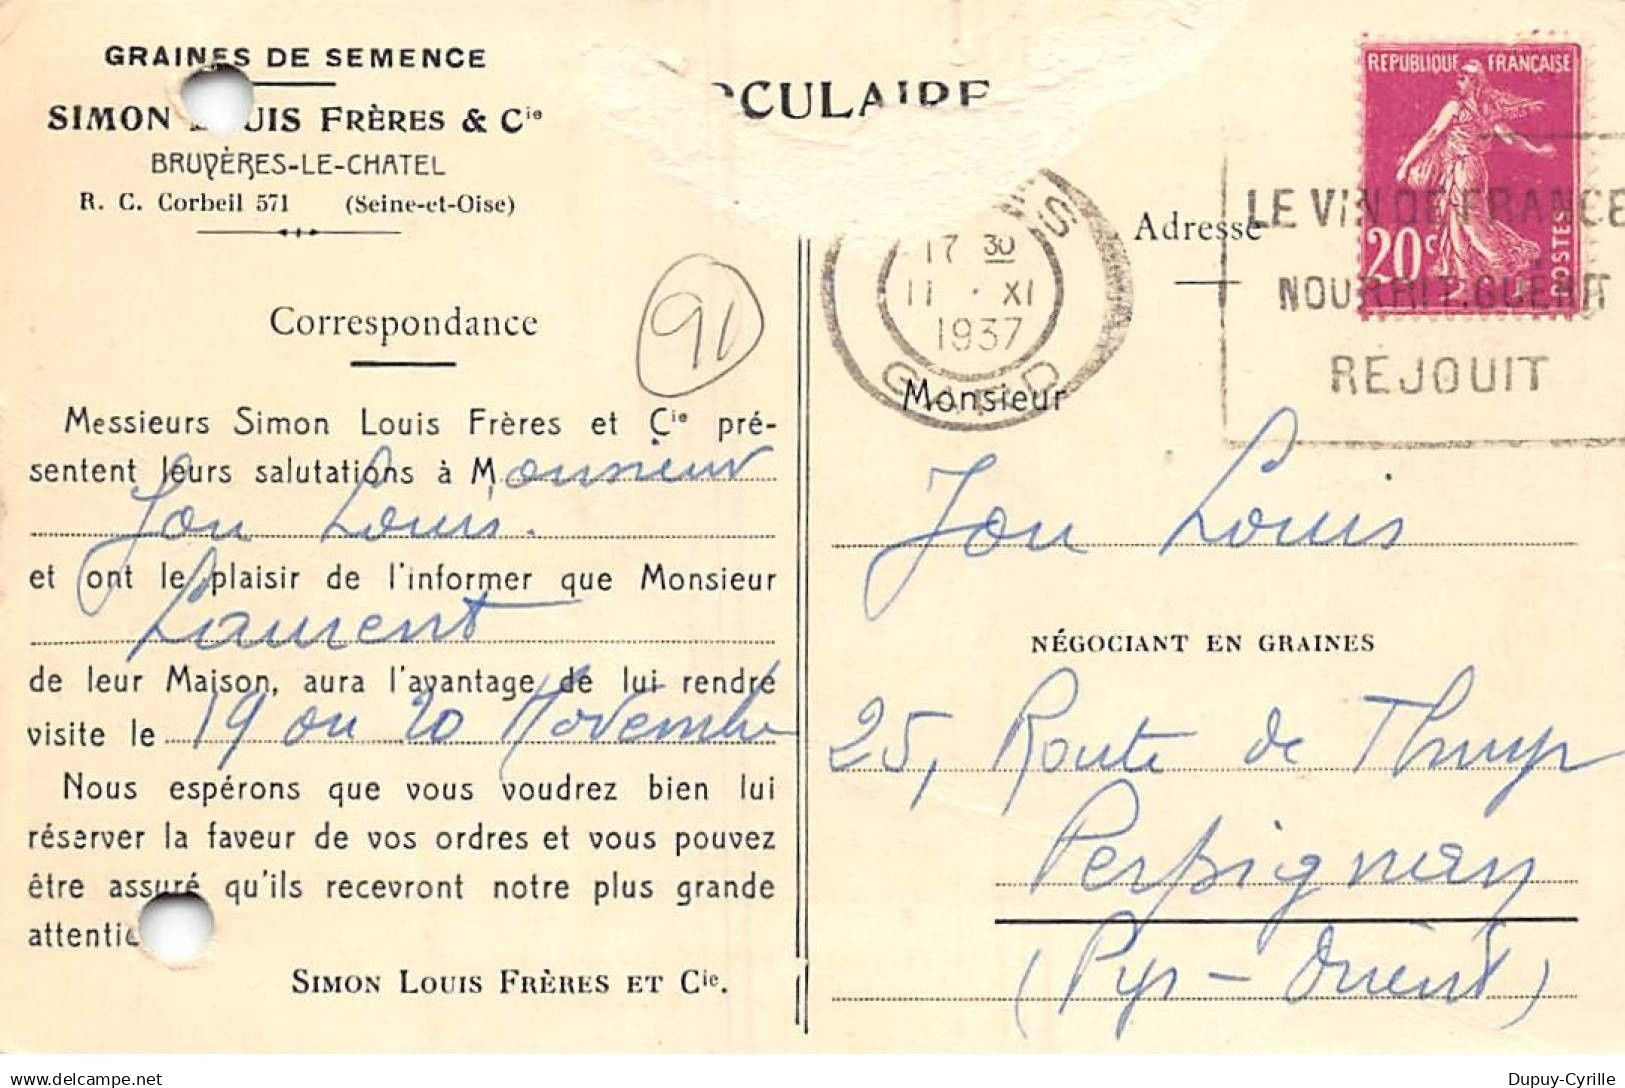 GRAINES DE SEMENCE
SIMON LOUIS FRÈRES & Cie
BRUYÈRES-LE-CHATEL
R. C. Corbeil 571 (Seine-et-Oise)
Correspondance
91
Messieurs Simon Louis Frères et Cie pré-
sentent leurs salutations à Monsieur
Jou Louis.
et ont le plaisir de l'informer que Monsieur
Laurent
de leur Maison, aura l'avantage de lui rendre
visite le 19 ou 20 Novembre
Nous espérons que vous voudrez bien lui
réserver la faveur de vos ordres et vous pouvez
être assuré qu'ils recevront notre plus grande
attentio
SIMON LOUIS FRÈRES ET Cie.
RCULAIRE
17 30
11 · XI
1937
GARD
REPUBLIQUE FRANÇAISE
20c
POSTES
LE VIN DE FRANCE
NOURRIT.GUÉRIT
REJOUIT
Adresse
Monsieur
Jou Louis
NÉGOCIANT EN GRAINES
25, Route de Thuyr
Perpignan
(Pyr-Orient)
Dupuy-Cyrille